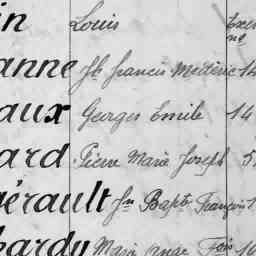 in Louis Exem
nº
anne Jh francis Médéric 14
aux Georges Emile 14
ard Pierre Marie Joseph 5
gérault Jn Bapte François 1
bardy Marie Ange Fois 10